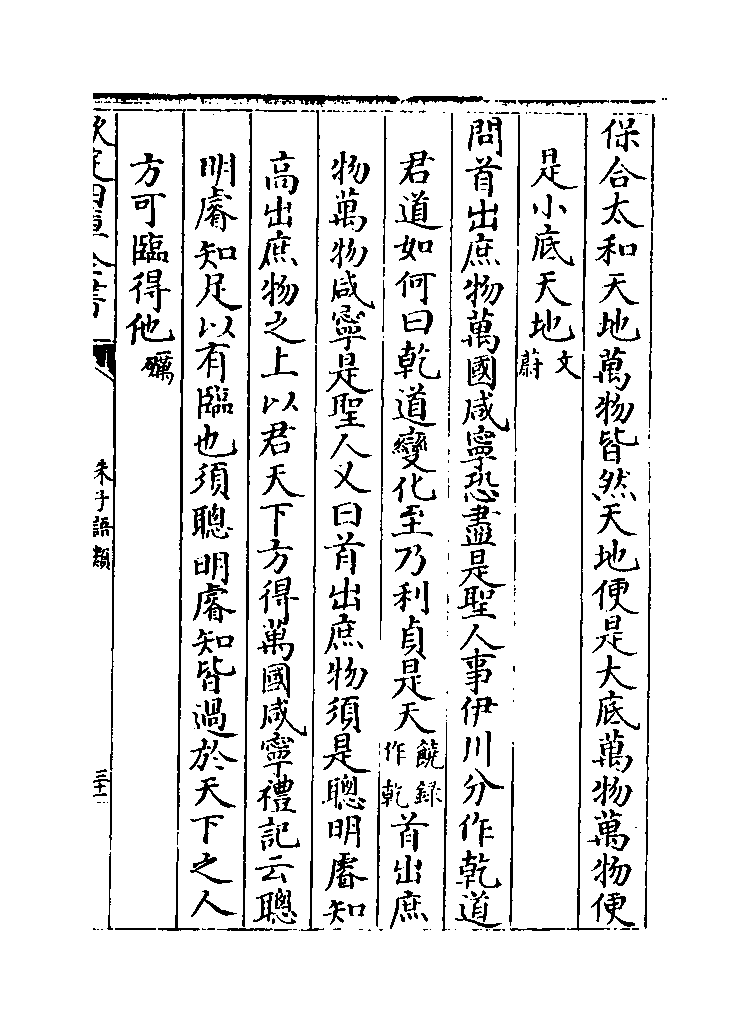 保合太和天地萬物皆然天地便是大底萬物萬物便
是小底天地文蔚
問首出庶物萬國咸寧恐盡是聖人事伊川分作乾道
君道如何曰乾道變化至乃利貞是天饒録作乾首出庶
物萬物咸寧是聖人又曰首出庶物須是聰明睿知
高出庶物之上以君天下方得萬國咸寧禮記云聰
明睿知足以有臨也須聰明睿知皆過於天下之人
方可臨得他礪
欽定四庫全書
朱子語類